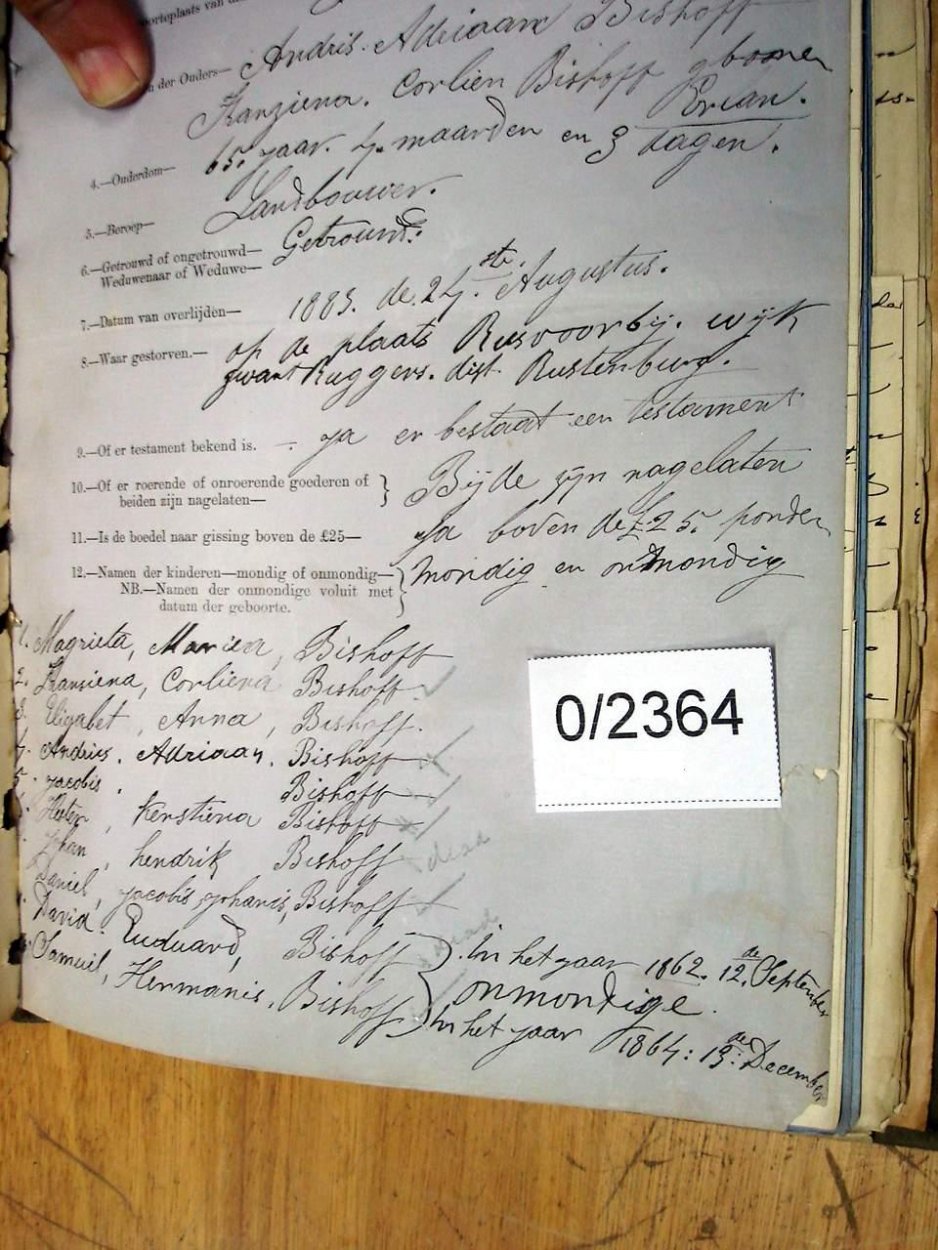 Andris. Adriaan Bishoff
der Ouders—
Fransiena. Corlien Bishoff gboren
Ercan.
4.—Ouderdom— 65. jaar. 4. maarden en 3 dagen.
5.—Beroep— Landbouwer.
6.—Getrouwd of ongetrouwd— Getrouwd.
Weduwenaar of Weduwe—
7.—Datum van overlijden— 1883. de 24.ste. Augustus.
8.—Waar gestorven.— op de plaats Rusvoorbij. wijk
Ruggers. dist. Rustenburg.
9.—Of er testament bekend is. — ja er bestaat een testament
10.—Of er roerende of onroerende goederen of } Bijde zijn nagelaten
beiden zijn nagelaten—
11.—Is de boedel naar gissing boven de £25— Ja boven de £25. ponden
12.—Namen der kinderen—mondig of onmondig— } mondig en onmondig
NB.—Namen der onmondige voluit met
datum der geboorte.
1. Magrieta, Mariea, Bishoff
2. Fransiena, Corliena Bishoff
3. Eligabet, Anna, Bishoff.
4. Andries. Adriaan. Bishoff
5. jacobis. Bishoff
Hester, Kerstiena Bishoff
Johan, hendrik Bishoff dead
Daniel, jacobis, johanis, Bishoff
David. Euduard, Bishoff } dead In het jaar 1862. 12.de September
onmondige.
Samuil, Hermanis. Bishoff } In het jaar 1864: 13:de December
0/2364